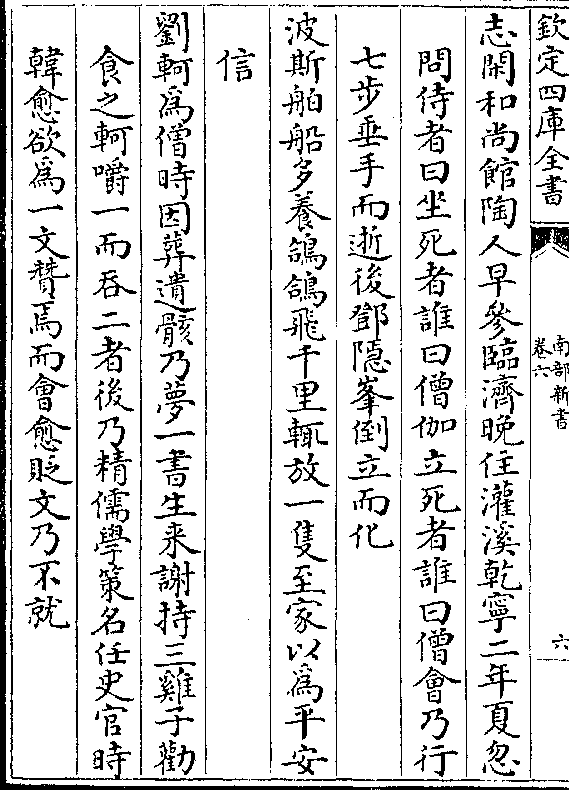 欽定四庫全書
南部新書
卷六
六
志閑和尚館陶人早參臨濟晚住灌溪乾寧二年夏忽
問侍者曰坐死者誰曰僧伽立死者誰曰僧會乃行
七步垂手而逝後鄧隱峯倒立而化
波斯舶船多養鴿鴿飛千里輒放一隻至家以為平安
信
劉軻為僧時因葬遺骸乃夢一書生来謝持三雞子勸
食之軻嚼一而吞二者後乃精儒學策名任史官時
韓愈欲為一文贊焉而會愈貶文乃不就